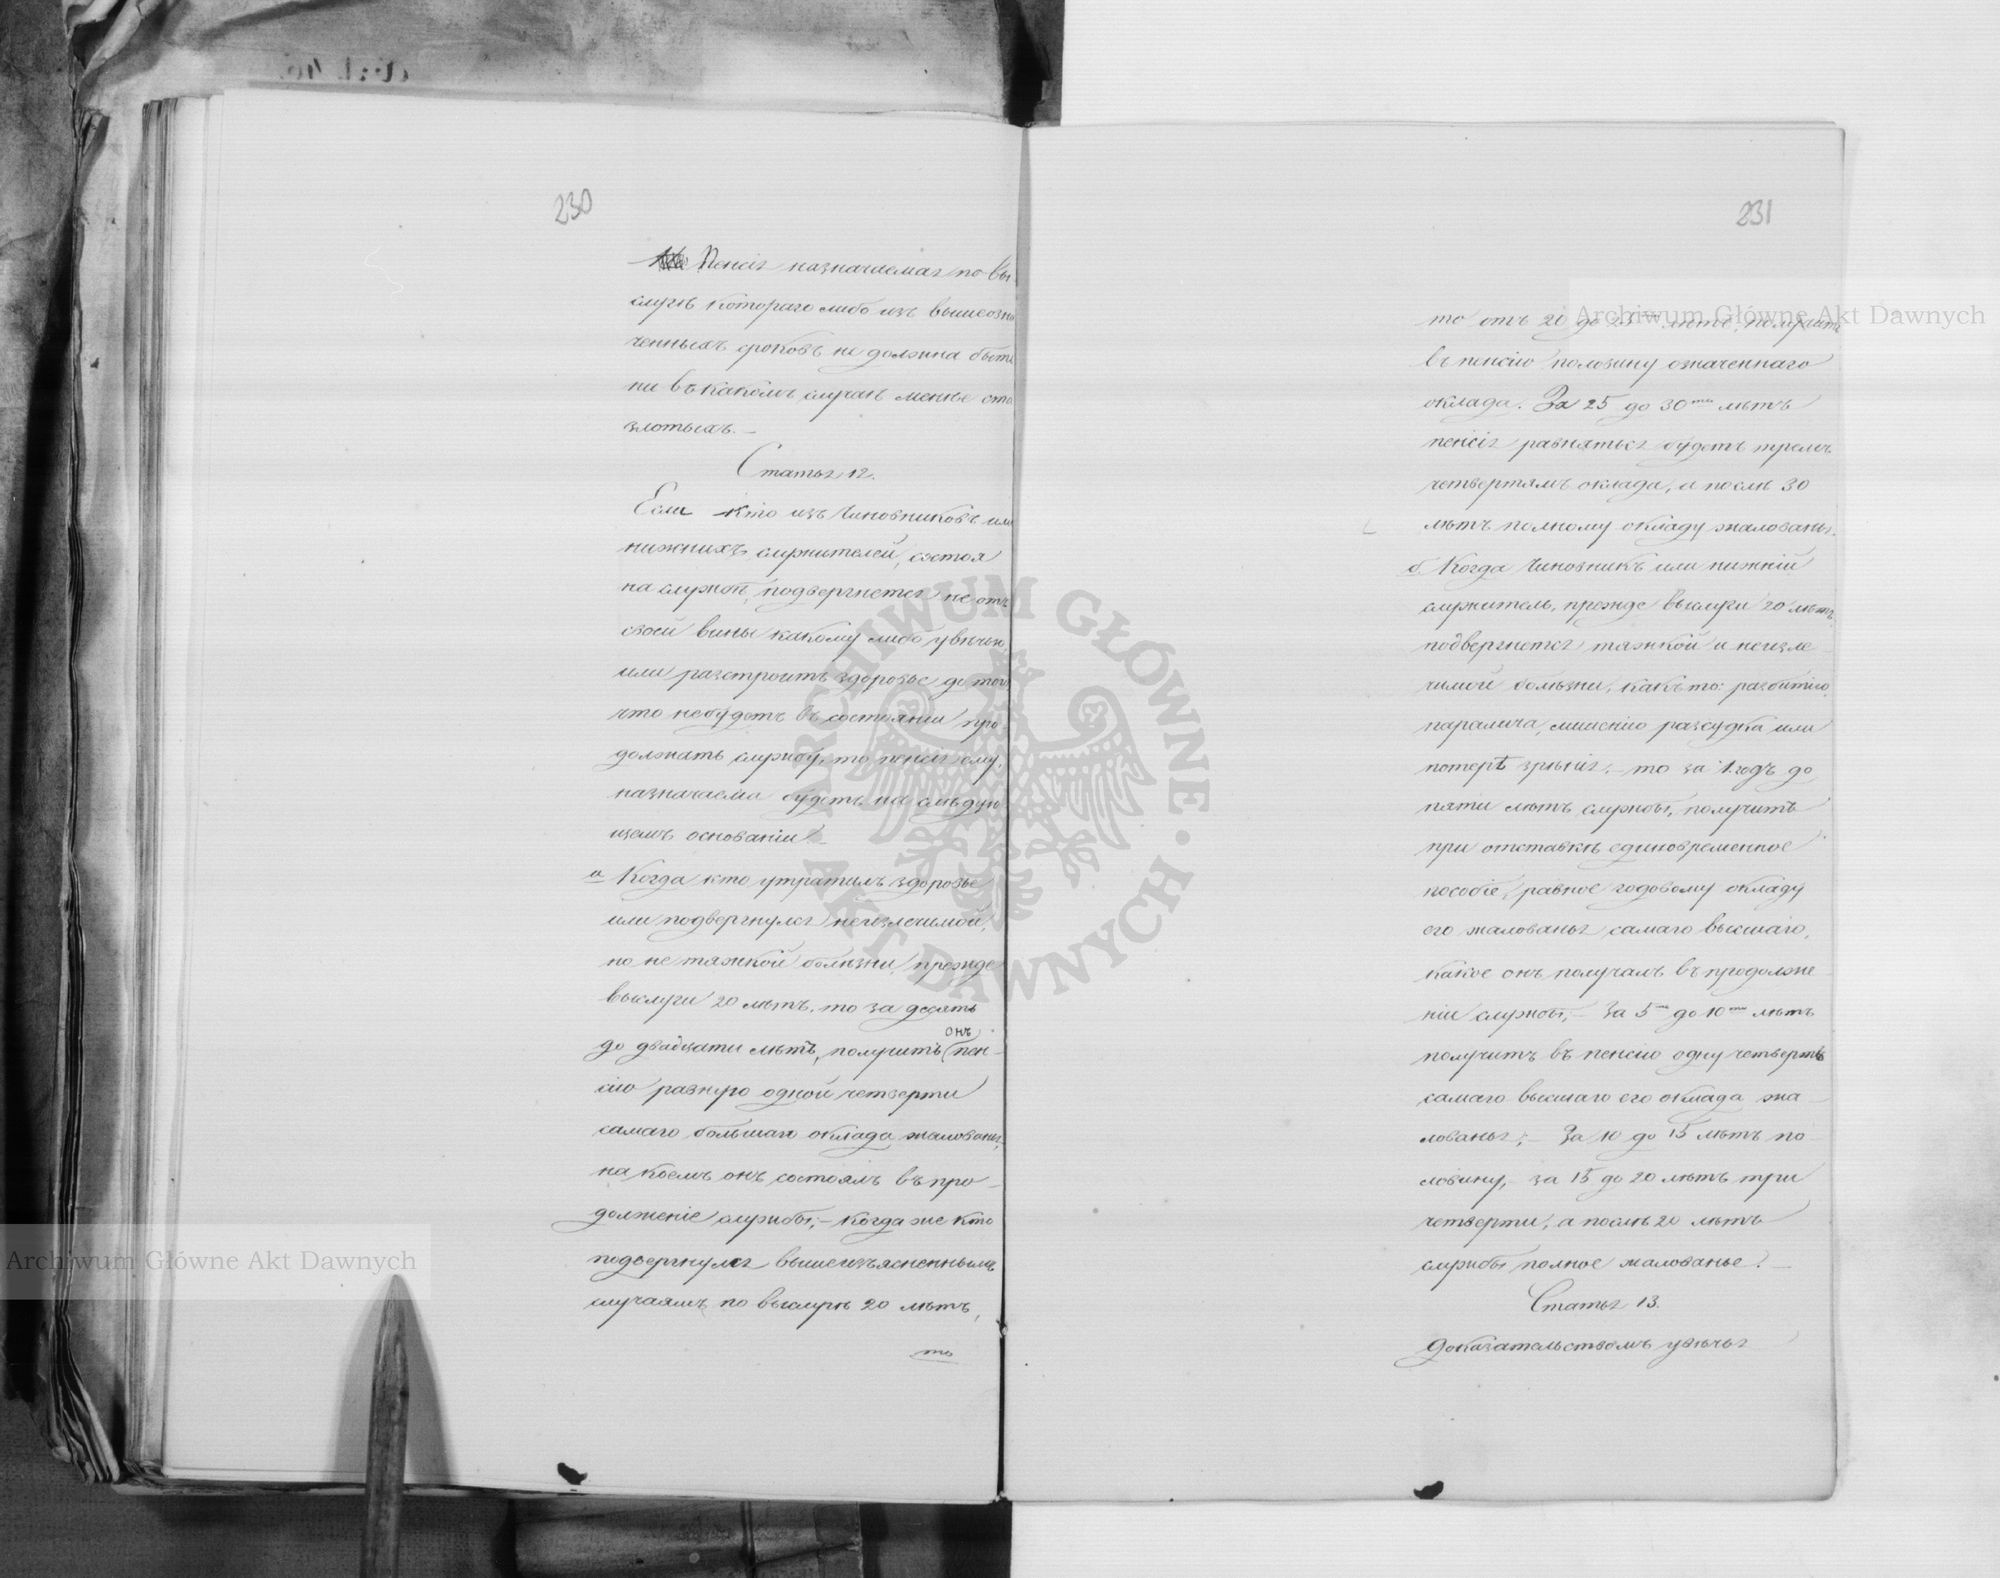 230
Пенсія назначаемая по вы-
слугѣ котораго либо изъ вышеозна
ченныхъ сроковъ не должна быть
ни въ какомъ случаѣ менѣе ста
злотыхъ. —
Статья 12.
Если кто изъ Чиновниковъ или
нижнихъ служителей, состоя
на службѣ, подвергнется не отъ
своей вины какому либо увѣчью
или разстроитъ здоровье до того,
что не будетъ въ состояніи про-
должать службу, то пенсія ему,
назначаема будетъ на слѣдую
щемъ основаніи. —
а Когда кто утратилъ здоровье
или подвергнулся неизлечимой,
но не тяжкой болѣзни, прежде
выслуги 20 лѣтъ, то за десять
до двадцати лѣтъ, получитъ онъ пен-
сію равную одной четверти
самаго большаго оклада жалованья,
на коемъ онъ состоялъ въ про-
долженіе службы; — когда же кто
подвергнулся вышеизъясненнымъ
случаямъ по выслугѣ 20 лѣтъ,
то
231
то отъ 20 до 25 лѣтъ, получитъ
въ пенсію половину означеннаго
оклада. За 25 до 30ти лѣтъ
пенсія равняться будетъ тремъ
четвертямъ оклада, а послѣ 30
лѣтъ полному окладу жалованья.
б. Когда Чиновникъ или нижній
служитель, прежде выслуги 20 лѣтъ,
подвергнется тяжкой и неизле-
чимой болѣзни, какъ то: разбитію
паралича, лишенію разсудка или
потерѣ зрѣнія, — то за 1. годъ до
пяти лѣтъ службы, получитъ
при отставкѣ единовременное
пособіе, равное годовому окладу
его жалованья самаго высшаго,
какое онъ получалъ въ продолже
ніи службы; — За 5ти до 10ти лѣтъ
получитъ въ пенсію одну четверть
самаго высшаго его оклада жа-
лованья; — За 10 до 15 лѣтъ по-
ловину, — за 15 до 20 лѣтъ три
четверти, а послѣ 20 лѣтъ
службы полное жалованье. —
Статья 13.
Доказательствомъ увѣчья
Archiwum Główne Akt Dawnych
Archiwum Główne Akt Dawnych
ARCHIWUM GŁÓWNE · AKT DAWNYCH ·